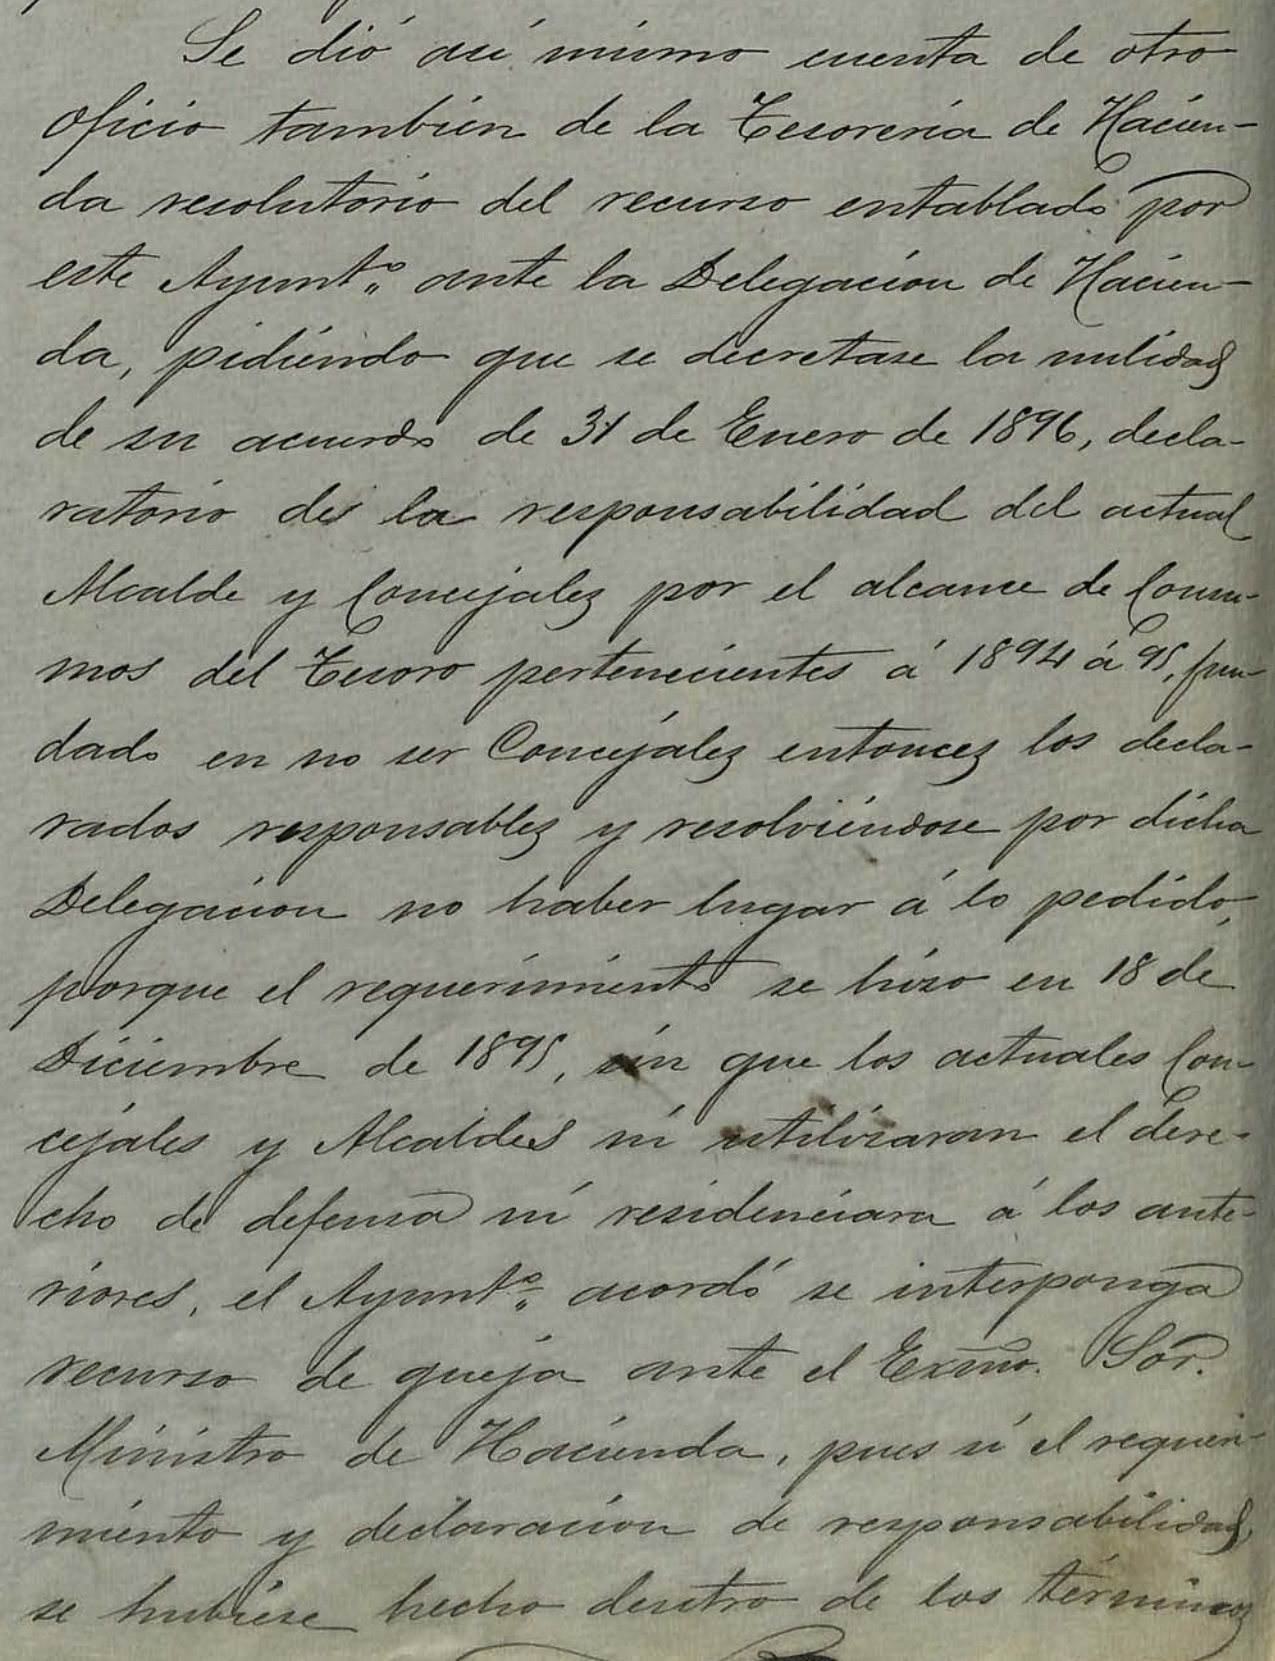 Se dió así mismo cuenta de otro
oficio también de la Tesorería de Hacien-
da resolutorio del recurso entablado por
este Ayuntº. ante la Delegación de Hacien-
da, pidiendo que se decretase la nulidad
de su acuerdo de 31 de Enero de 1896, decla-
ratorio de la responsabilidad del actual
Alcalde y Concejalez por el alcance de Consu-
mos del Tesoro pertenecientes á 1894 á 95, fun-
dado en no ser Concejalez entoncez los decla-
rados responsablez y resolviéndose por dicha
Delegación no haber lugar á lo pedido,
porque el requerimiento se hizo en 18 de
Diciembre de 1895, sin que los actuales Con-
cejales y Alcaldes ni utilizaran el dere-
cho de defensa ni residenciara á los ante-
riores, el Ayuntº. acordó se interponga
recurso de queja ante el Exmo. Sor.
Ministro de Hacienda, pues si el requeri-
miento y declaración de responsabilidad,
se hubiese hecho dentro de los términoz